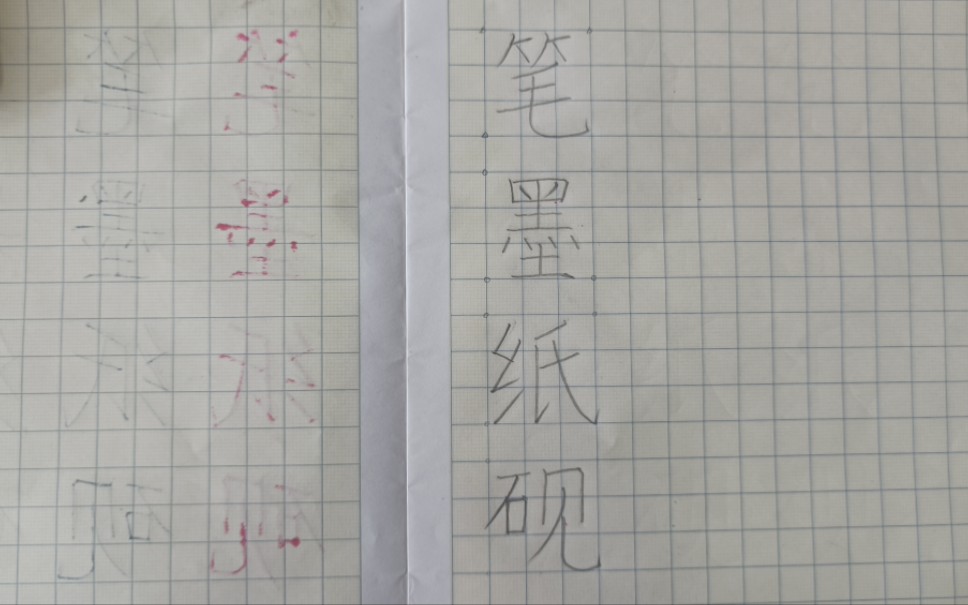 笔
墨
纸
砚